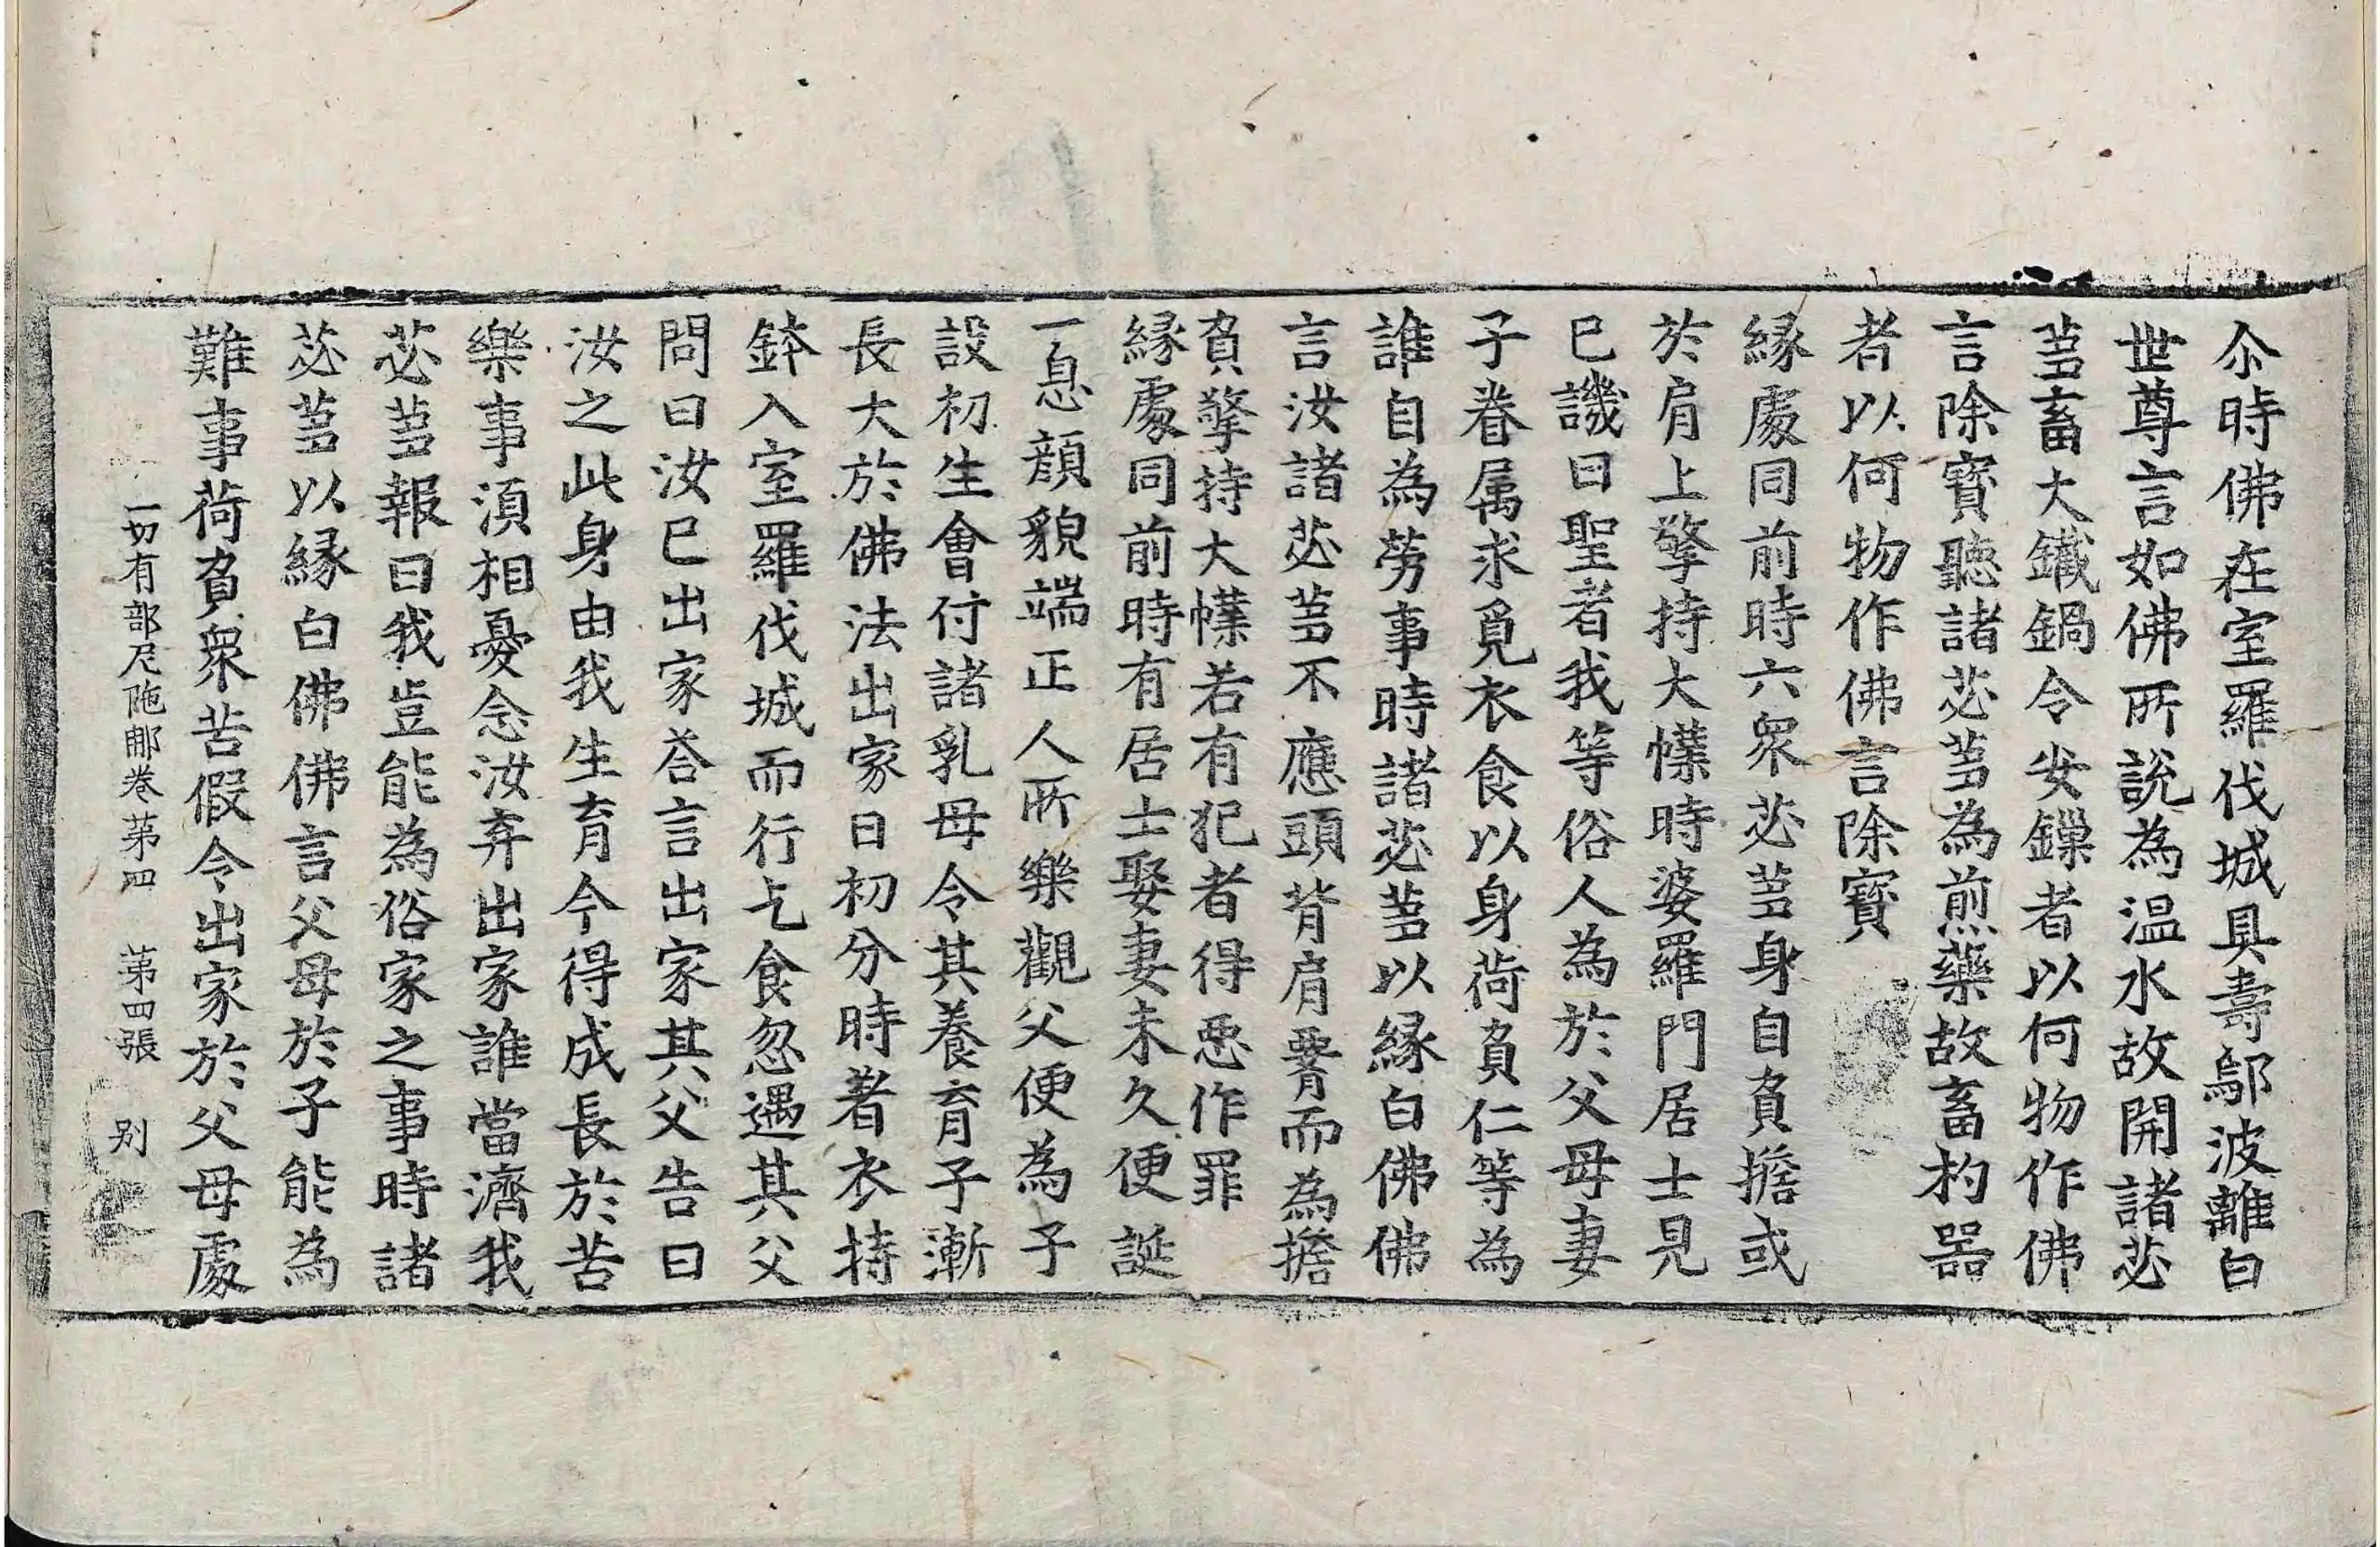 尒時佛在室羅伐城具壽鄔波離白
世尊言如佛所說為温水故開諸苾
芻畜大鐵鍋令安鏁者以何物作佛
言除寶聽諸苾芻為煎藥故畜杓器
者以何物作佛言除寶
緣處同前時六衆苾芻身自負擔或
於肩上擎持大幞時婆羅門居士見
已譏曰聖者我等俗人為於父母妻
子眷属求覓衣食以身荷負仁等為
誰自為勞事時諸苾芻以緣白佛佛
言汝諸苾芻不應頭背肩䯗而為擔
負擎持大幞若有犯者得惡作罪
緣處同前時有居士娶妻未久便誕
一息顔貌端正人所樂觀父便為子
設初生會付諸乳母令其養育子漸
長大於佛法出家日初分時著衣持
鉢入室羅伐城而行乞食忽遇其父
問曰汝已出家荅言出家其父告曰
汝之此身由我生育今得成長於苦
樂事湏相憂念汝弃出家誰當濟我
苾芻報曰我豈能為俗家之事時諸
苾芻以緣白佛佛言父母於子能為
難事荷負衆苦假令出家於父母處
一切有部尼陁那卷苐四 苐四張 别